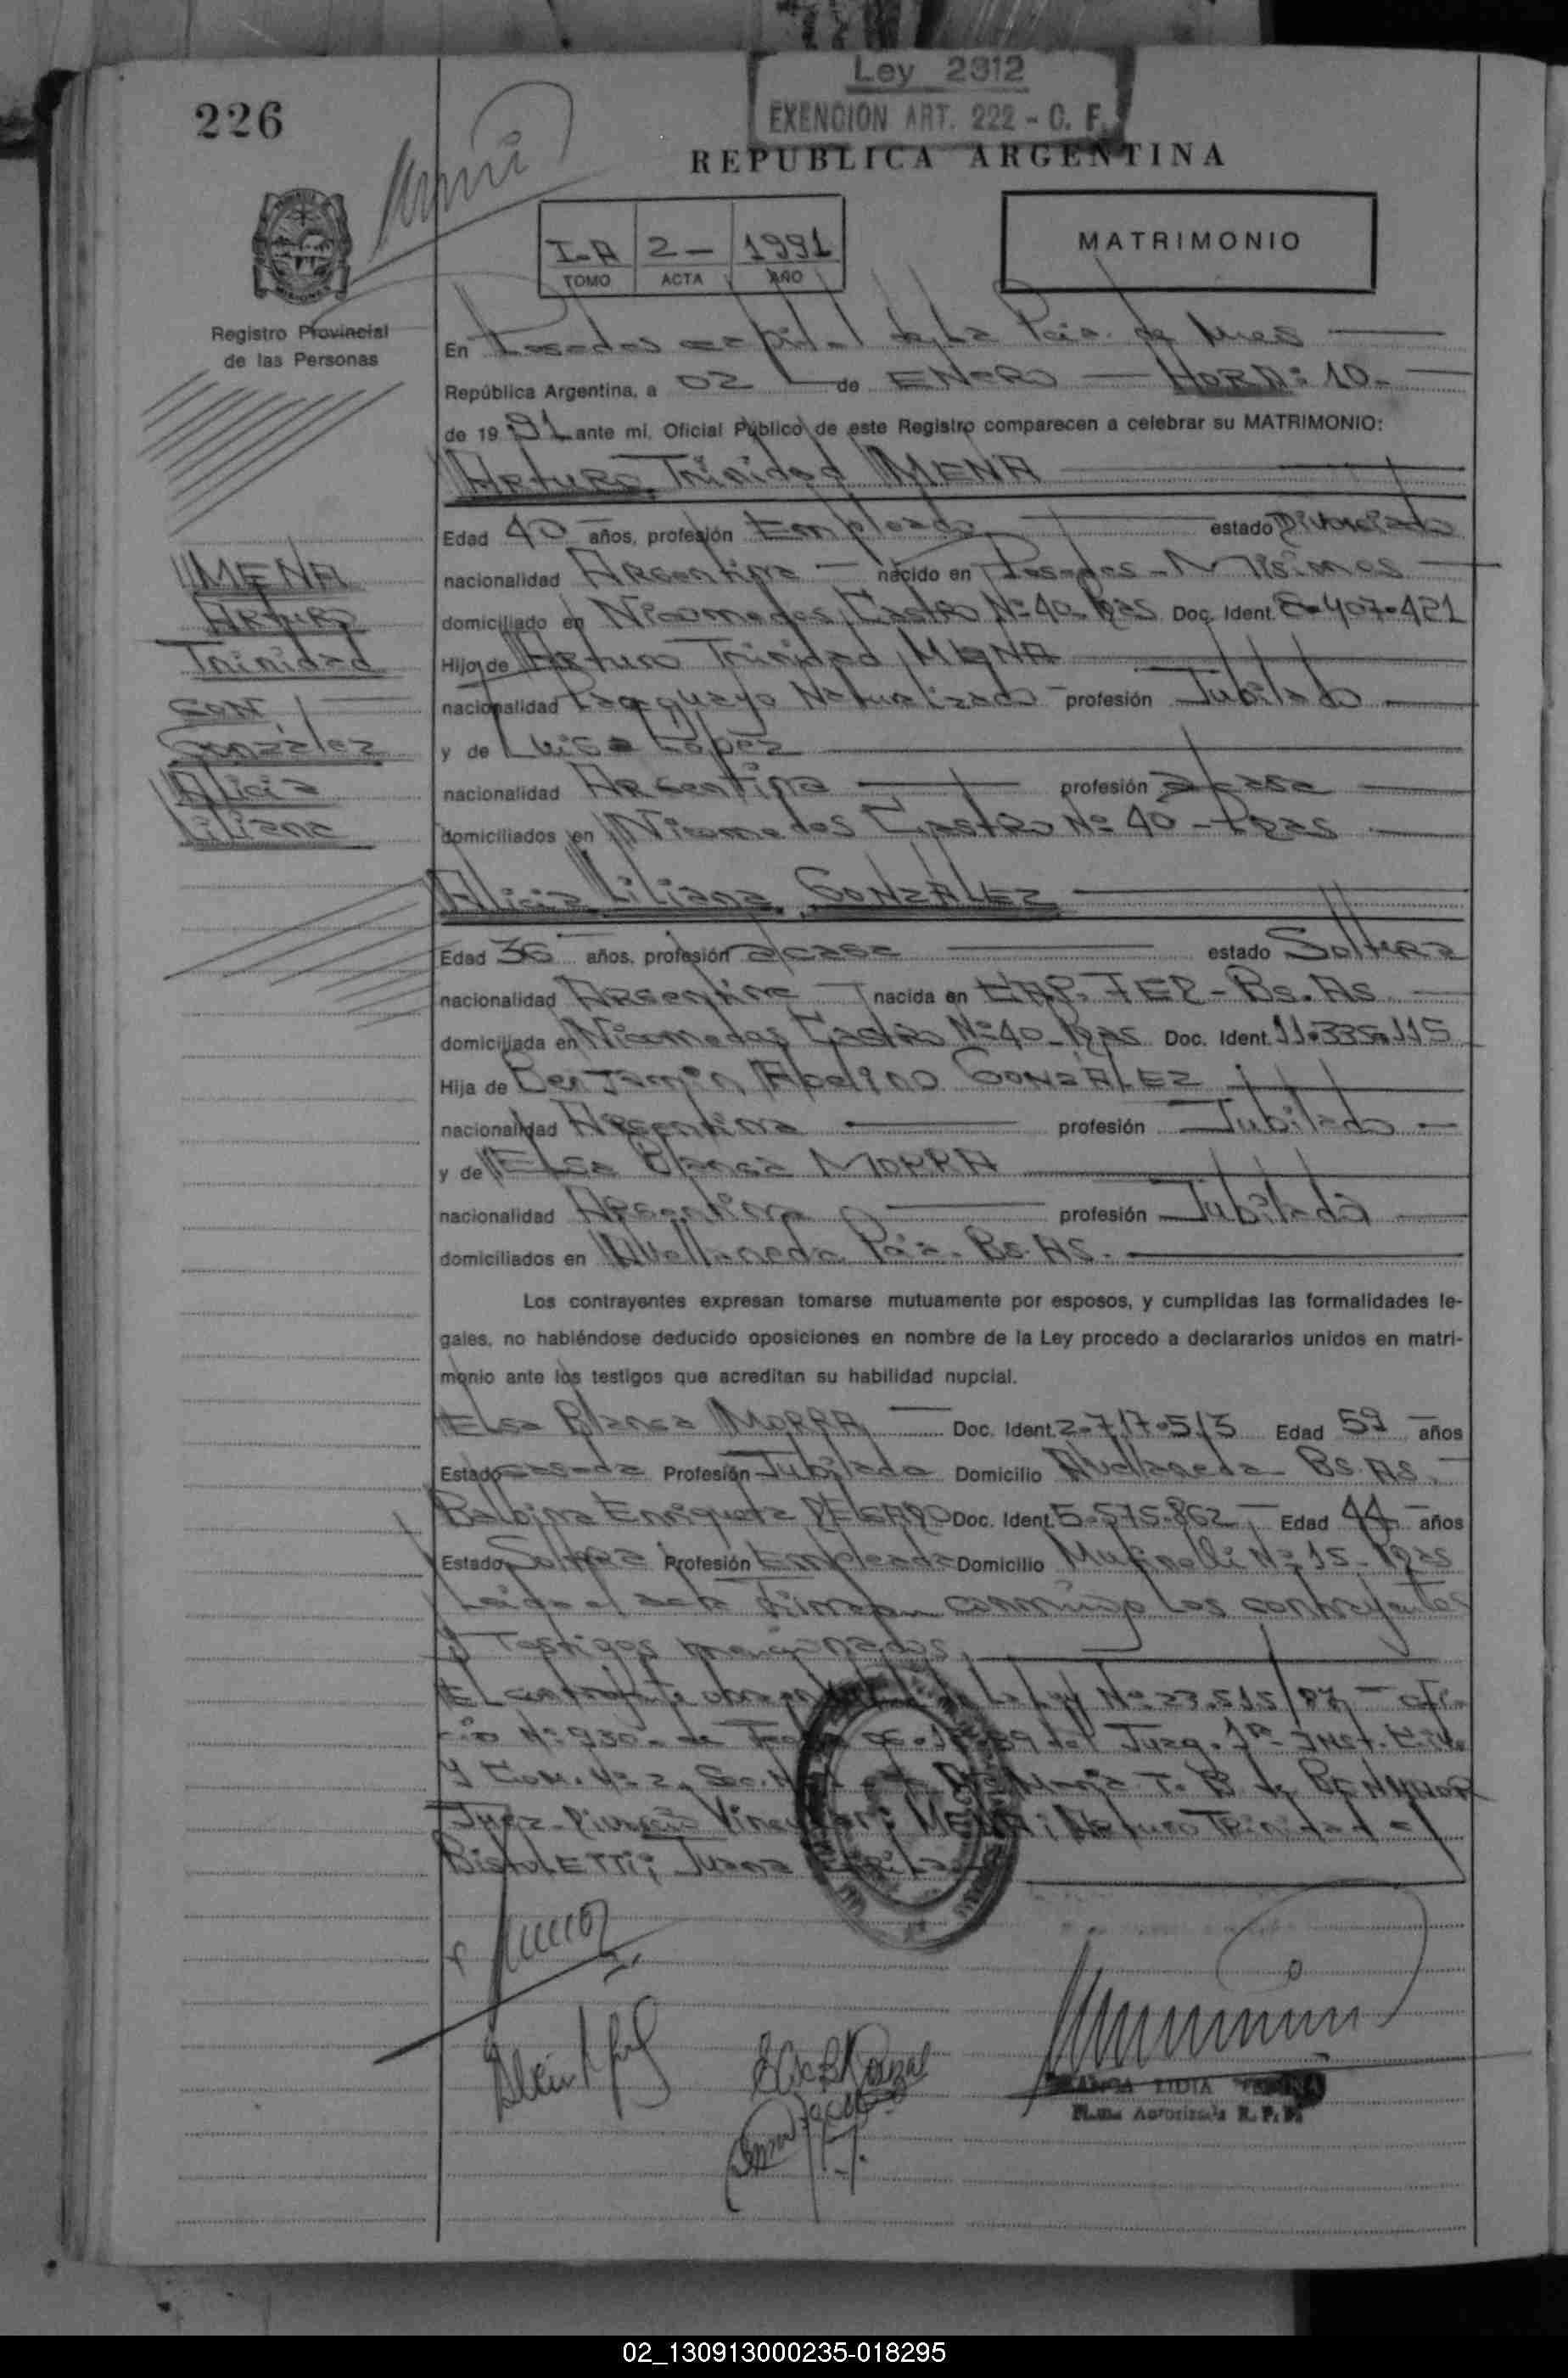 Ley 2312
EXENCION ART. 222 - C. F.
226
REPUBLICA ARGENTINA
I-A 2- 1991
TOMO ACTA AÑO
MATRIMONIO
Registro Provincial
de las Personas
En Posadas capital de La Pcia. de Mnes
República Argentina, a 02 de ENERO HORA: 10-
de 1991 ante mi, Oficial Público de este Registro comparecen a celebrar su MATRIMONIO:
Arturo Trinidad MENA
Edad 40 años, profesión Empleado estado Divorciado
nacionalidad Argentina nacido en Posadas-Misiones
domiciliado en Nicomedes Castro Nº 40-Pdas Doc. Ident. 8.407.421
Hijo de Arturo Trinidad MENA
nacionalidad Paraguayo Naturalizado profesión Jubilado
y de Luisa López
nacionalidad Argentina profesión a/casa
domiciliados en Nicomedes Castro Nº 40-Pdas
MENA
Arturo
Trinidad
CON
González
Alicia
Liliana
Alicia Liliana GONZALEZ
Edad 36 años, profesión a/casa estado Soltera
nacionalidad Argentina nacida en CAP. FED-Bs.As
domiciliada en Nicomedes Castro Nº 40-Pdas Doc. Ident. 11.335.115
Hija de Benjamín Abelino GONZALEZ
nacionalidad Argentina profesión Jubilado
y de Elsa Blanca MORRA
nacionalidad Argentina profesión Jubilada
domiciliados en Avellaneda Pcia. Bs.AS.
Los contrayentes expresan tomarse mutuamente por esposos, y cumplidas las formalidades le-
gales, no habiéndose deducido oposiciones en nombre de la Ley procedo a declararlos unidos en matri-
monio ante los testigos que acreditan su habilidad nupcial.
Elsa Blanca MORRA Doc. Ident. 2.717.513 Edad 59 años
Estado casada Profesión Jubilada Domicilio Avellaneda Bs.AS.
Balbina Enriqueta DELGADO Doc. Ident. 5.575.862 Edad 44 años
Estado Soltera Profesión Empleada Domicilio Nº 15-Pdas
Leída el acta Firman conmigo los contrayentes
y Testigos mencionados
El contrayente la Ley Nº 23.515/87 - ofi-
cio Nº 930- de del Juzg. 1ra Inst. Civ.
y Com. Nº 2. Sec. Nº 1 Dra María T. B de BENMAOR
Juez-Divorcio Vincular: MENA; Arturo Trinidad c/
BistolETTi; Juana
LIDIA
Autorizada R. P. P.
02_130913000235-018295